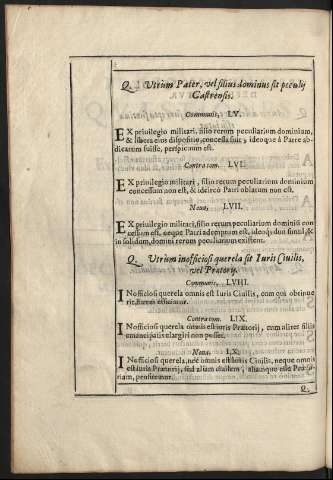 Q. Vtrùm Pater, vel filius dominus sit peculij
Castrensis.
Communis, LV.
EX priuilegio militari, filio rerum peculiarium dominium,
& libera eius dispositio, concessa fuit, ideoque à Patre abdicatum
fuisse, perspicuum est.
Contrarium. LVI.
EX priuilegio militari, filio rerum peculiarium dominium
concessum non est, & idcirco Patri ablatum non est.
Noua, LVII.
EX priuilegio militari, filio rerum peculiarium dominium concessum
est, neque Patri ademptum est, ideoque duo simul, &
in solidum, domini rerum peculiarium existent.
Q. Vtrùm inofficiosi querela sit Iuris Ciuilis,
vel Pratorij.
Communis, LVIII.
INofficiosi querela omnis est Iuris Ciuilis, cum qui obtinuerit,
Contrarium. LIX.
INofficiosi querela omnis est iuris Pratorij, cum aliter filius
emancipatus elargiri non posset.
Noua. LX.
INofficiosi querela, nec omnis est Iuris Ciuilis, neque omnis
est iuris Pratorij, sed aliam
Q.